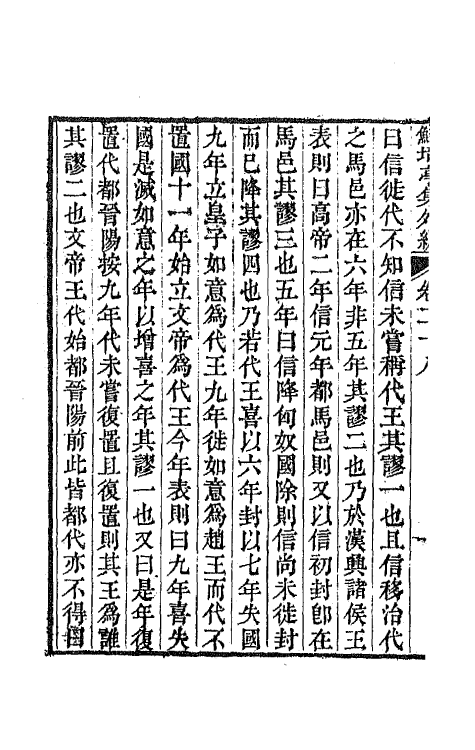 鮚埼亭集外編　卷二十八
曰信徙代不知信未嘗稱代王其謬一也且信移治代
之馬邑亦在六年非五年其謬二也乃於漢興諸侯王
表則曰高帝二年信元年都馬邑則又以信初封卽在
馬邑其謬三也五年曰信降匈奴國除則信尚未徙封
而已降其謬四也乃若代王喜以六年封以七年失國
九年立皇子如意爲代王九年徙如意爲趙王而代不
置國十一年始立文帝爲代王今年表則曰九年喜失
國是滅如意之年以增喜之年其謬一也又曰是年復
置代都晉陽按九年代未嘗復置且復置則其王爲誰
其謬二也文帝王代始都晉陽前此皆都代亦不得因